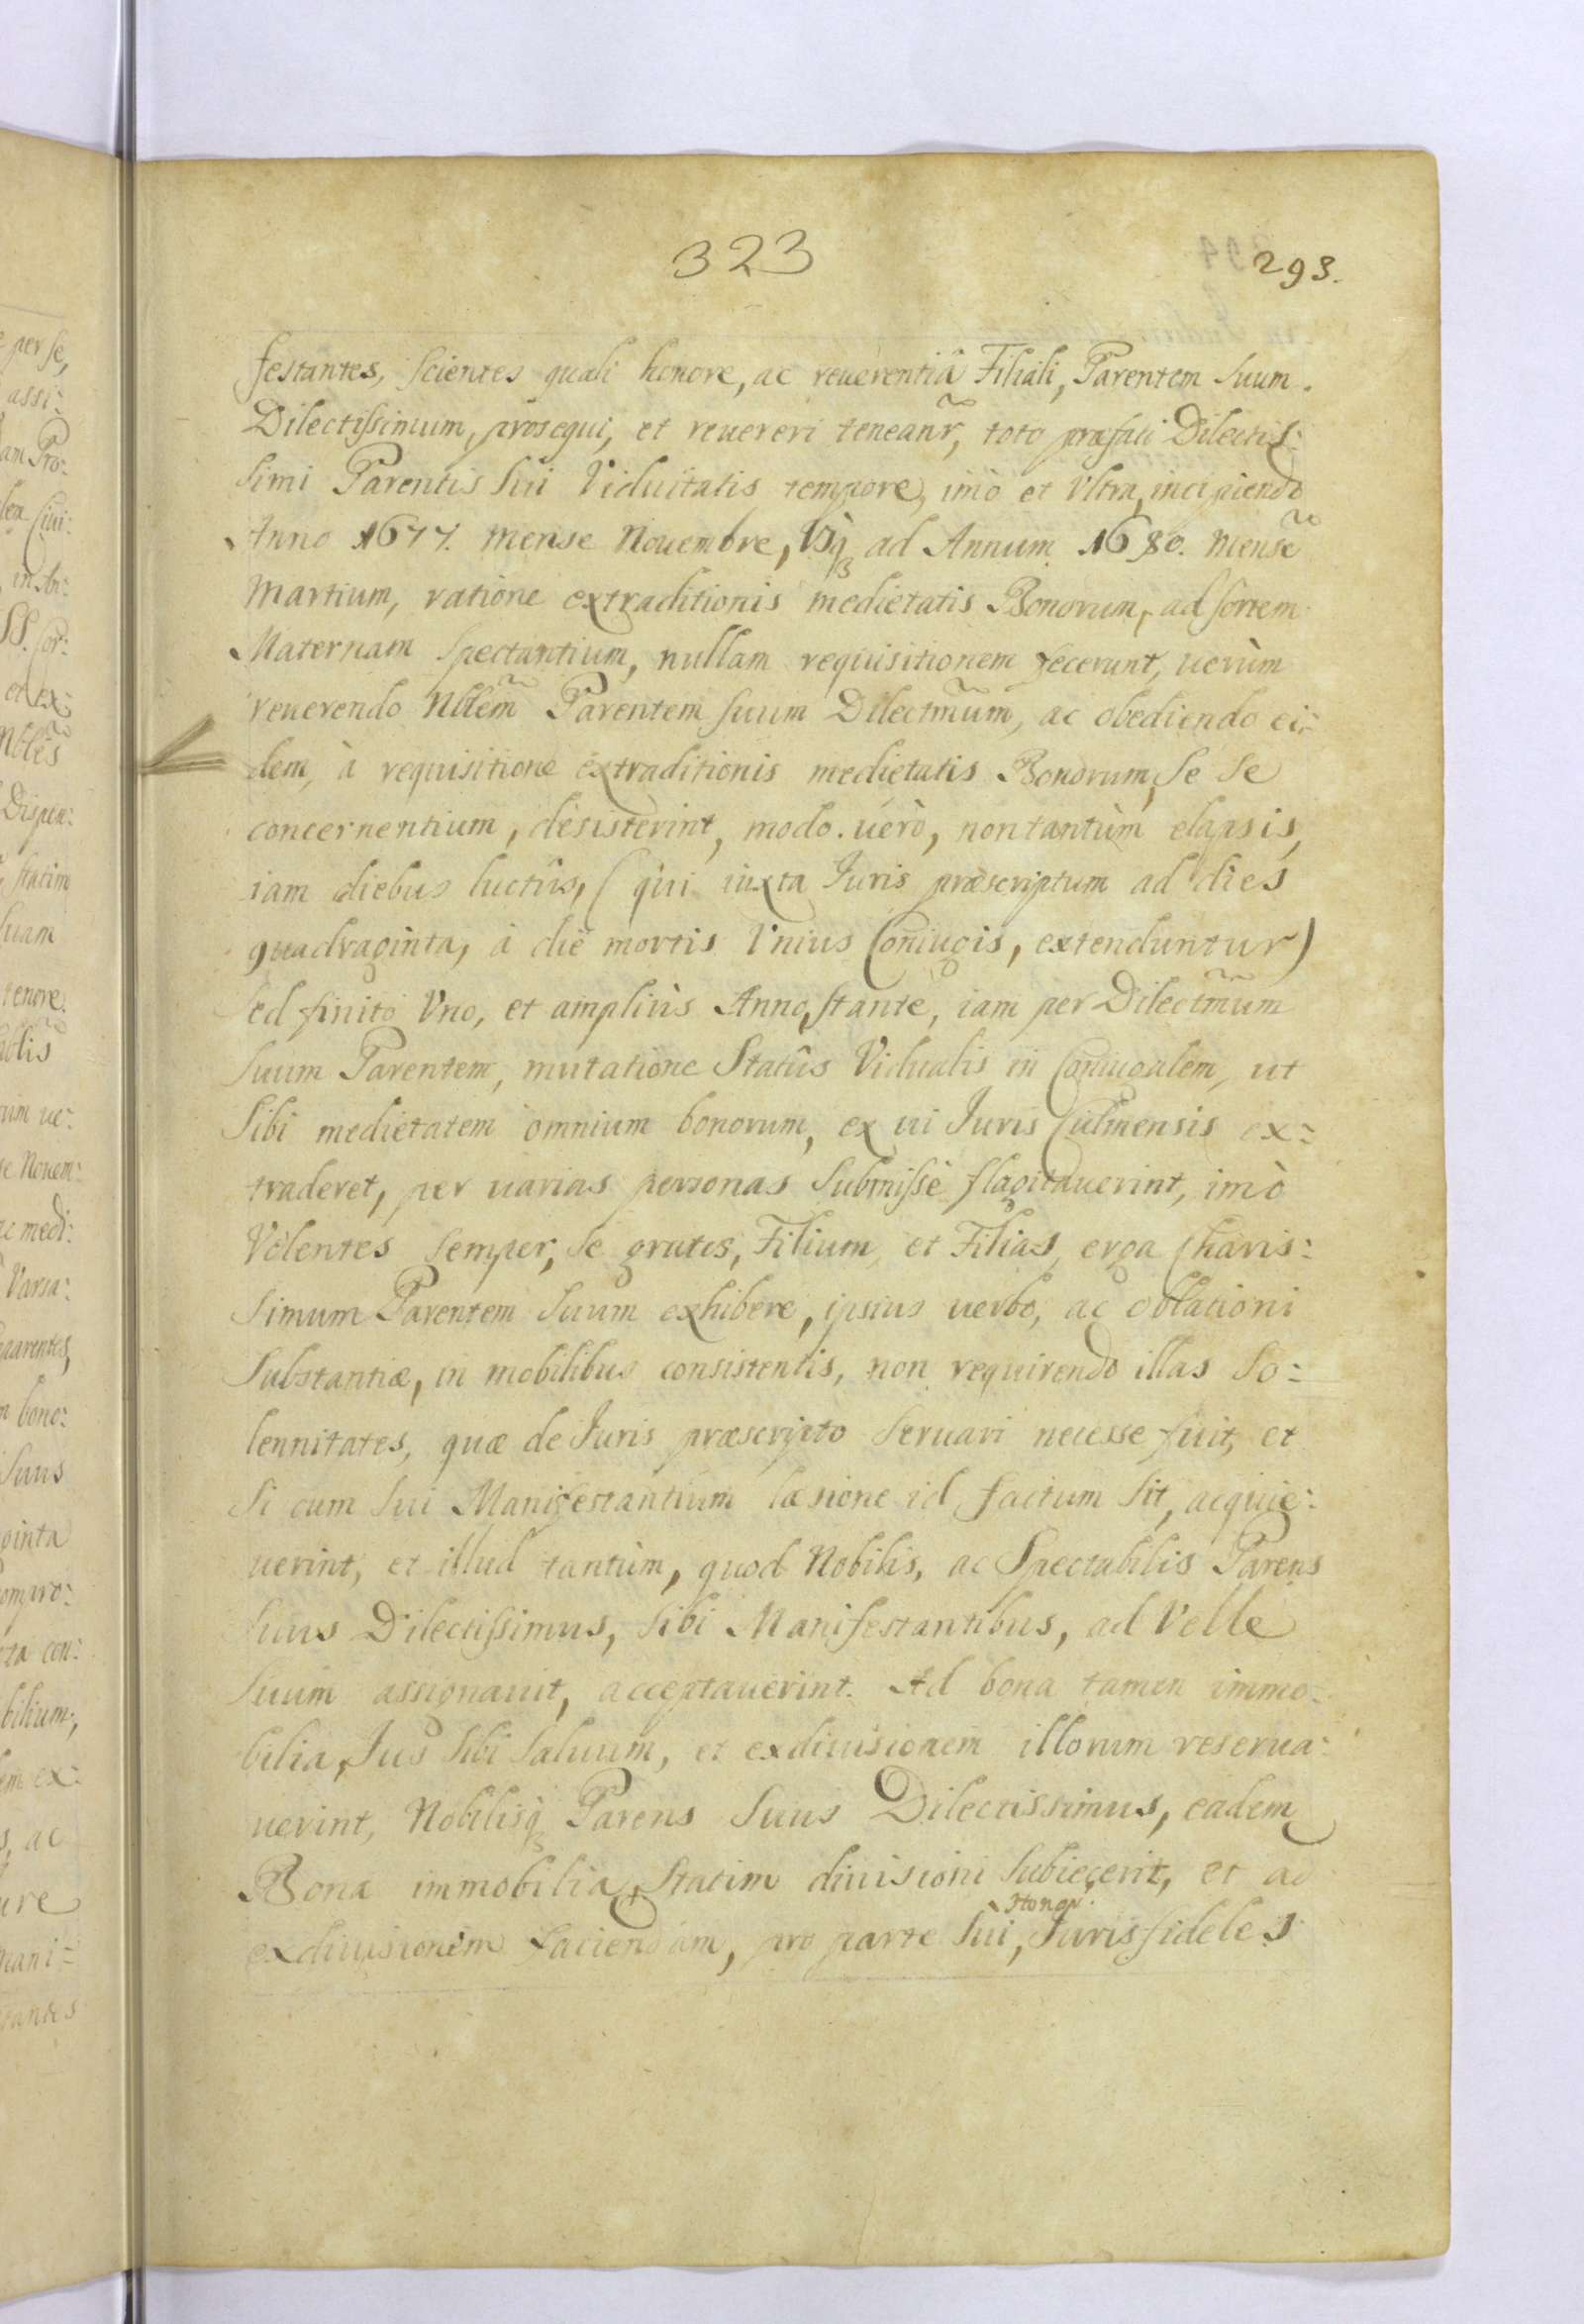 323
293.
festantes, scientes quali honore, ac reuerentiâ Filiali, Parentem suum.
Dilectissimum, prosequi, et reuereri teneanr̃, toto præfati Dilectis:
simi Parentis sui Viduitatis tempore, imò et Vltra, incipiendo
Anno 1677. mense Nouembre, Vsq3 ad Annum 1680. mensẽ
Martium, ratione extraditionis medietatis Bonorum, ad sortem
Maternam spectantium, nullam requisitionem fecerunt, uerùm
reuerendo Nblẽm Parentem suum Dilectm̃um, ac obediendo ei:
dem, à requisitione extraditionis medietatis Bonorum, se se
concernentium, desisterint, modo. uerò, non tantùm elapsis,
iam diebus luctûs, (qui iuxta Juris præscriptum ad dies
quadraginta, à die mortis Vnius Coniugis, extenduntur)
sed finito Vno, et ampliùs Anno, stante, iam per Dilectm̃um
suum Parentem, mutatione Statûs Vidualis in Coniugalem, ut
sibi medietatem omnium bonorum, ex ui Juris Culmensis ex:
traderet, per uarias personas submissè flagitauerint, imò
Volentes semper, se gratos, Filium, et Filias, erga Charis:
simum Parentem suum exhibere, ipsius uerbo, ac oblationi
substantiæ, in mobilibus consistentis, non requirendo illas so:
lennitates, quæ de Juris præscripto seruari necesse fuit, et
si cum sui Manifestantium læsione id factum sit, acquie:
uerint, et illud tantùm, quod Nobilis, ac Spectabilis Parens
suus Dilectissimus, sibi Manifestantibus, ad Velle
suum assignauit, acceptauerint. Ad bona tamen immo:
bilia, Jus sibi saluum, et exdiuisionem illorum reserua:
uerint, Nobilisq3 Parens suus Dilectissimus, eadem
Bona immobilia, statim diuisioni subiecerit, et ad
exdiuisionem faciendam, pro parte sui, Honor. Juris fideles